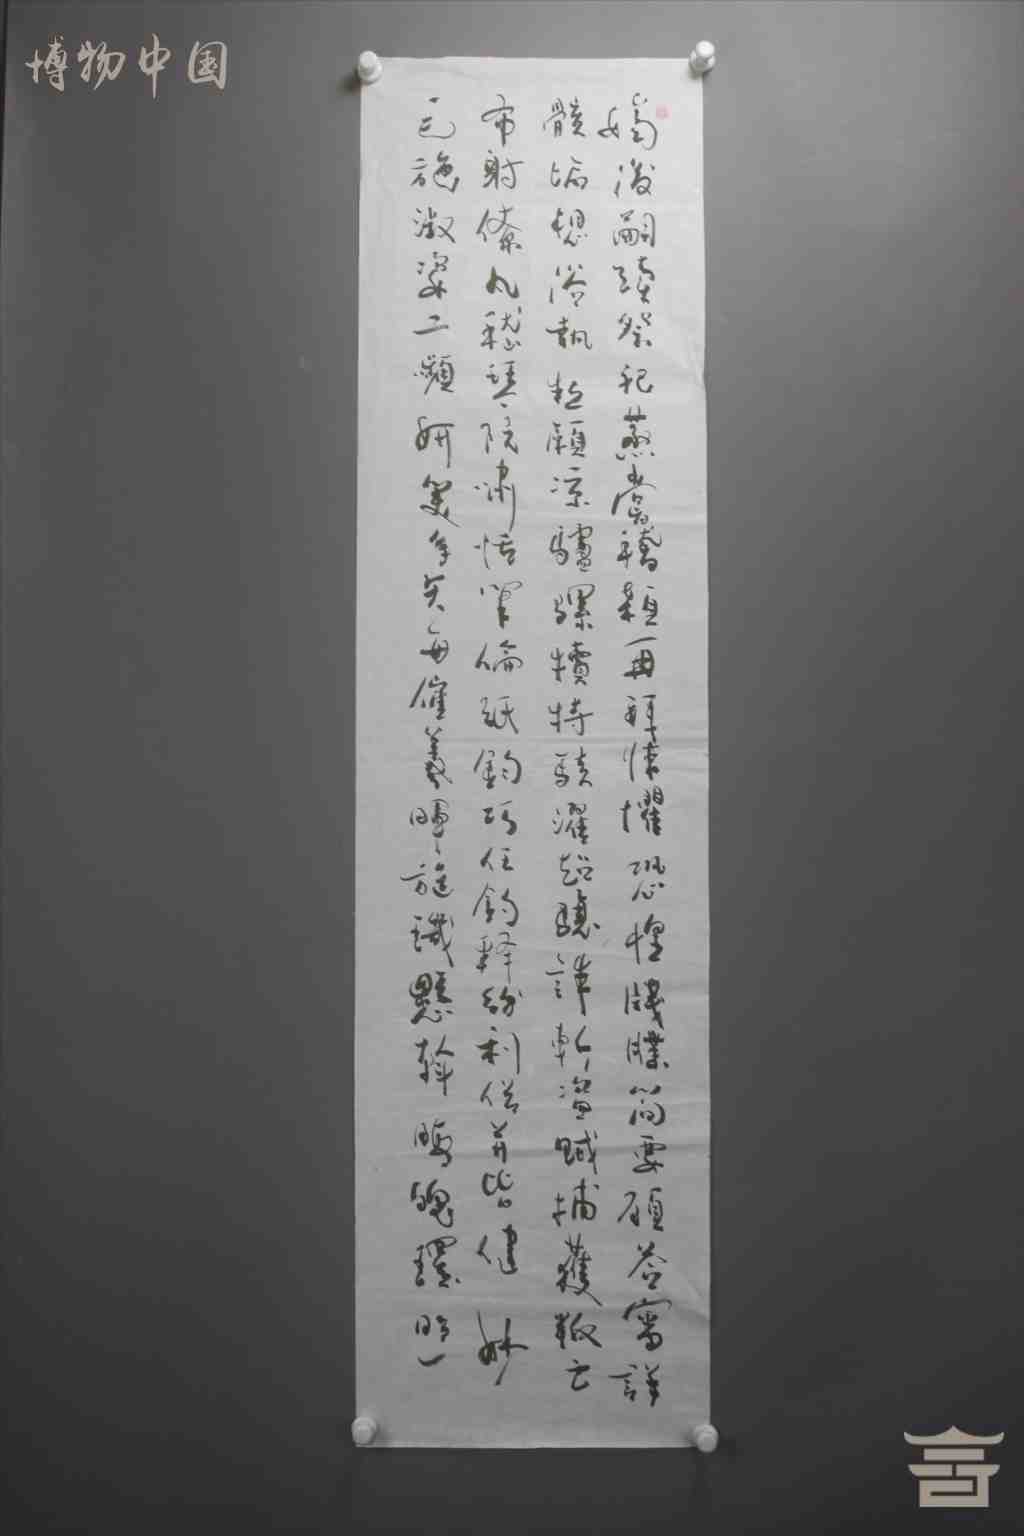 博物中国
嫡後嗣續祭祀蒸嘗稽顙再拜悚懼恐惶牋牒簡要顧答審詳
骸垢想浴執願涼驢騾犢特駭躍超驤誅斬盜賊捕獲叛亡
布射僚丸嵇琴阮嘯恬筆倫紙鈞巧任釣釋紛利俗並皆佳妙
毛施淑姿工顰妍笑年矢每催羲暉璣懸斡晦魄環照